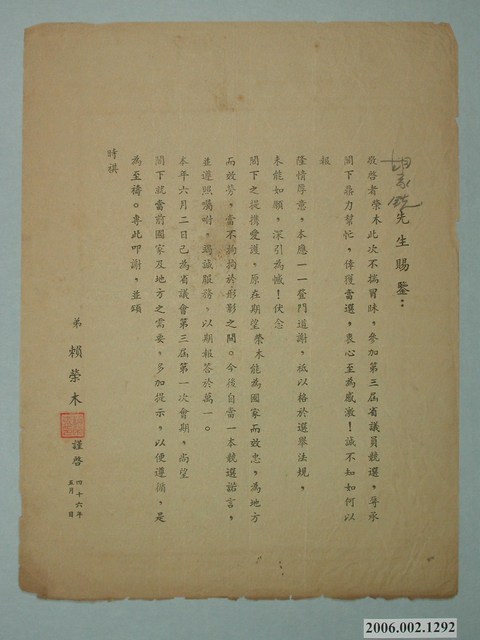 先生賜鑒：
敬啓者榮木此次不揣冒昧，參加第三屆省議員競選，辱承
閣下鼎力幫忙，倖獲當選，衷心至為感激！誠不知如何以
報
隆情厚意，本應一一登門道謝，祗以格於選舉法規，
未能如願，深引為憾！伏念
閣下之提携愛護，原在期望榮木能為國家而效忠，為地方
而效勞，當不拘拘於形形之間。今後自當一本競選諾言，
並遵照囑咐，竭誠服務，以期報答於萬一。
本年六月二日已為省議會第三屆第一次會期，尚望
閣下就當前國家及地方之需要，多加提示，以便遵循，是
為至禱。專此叩謝，並頌
時祺
弟 賴榮木 謹啓
四十六年
五月 日
2006.002.1292